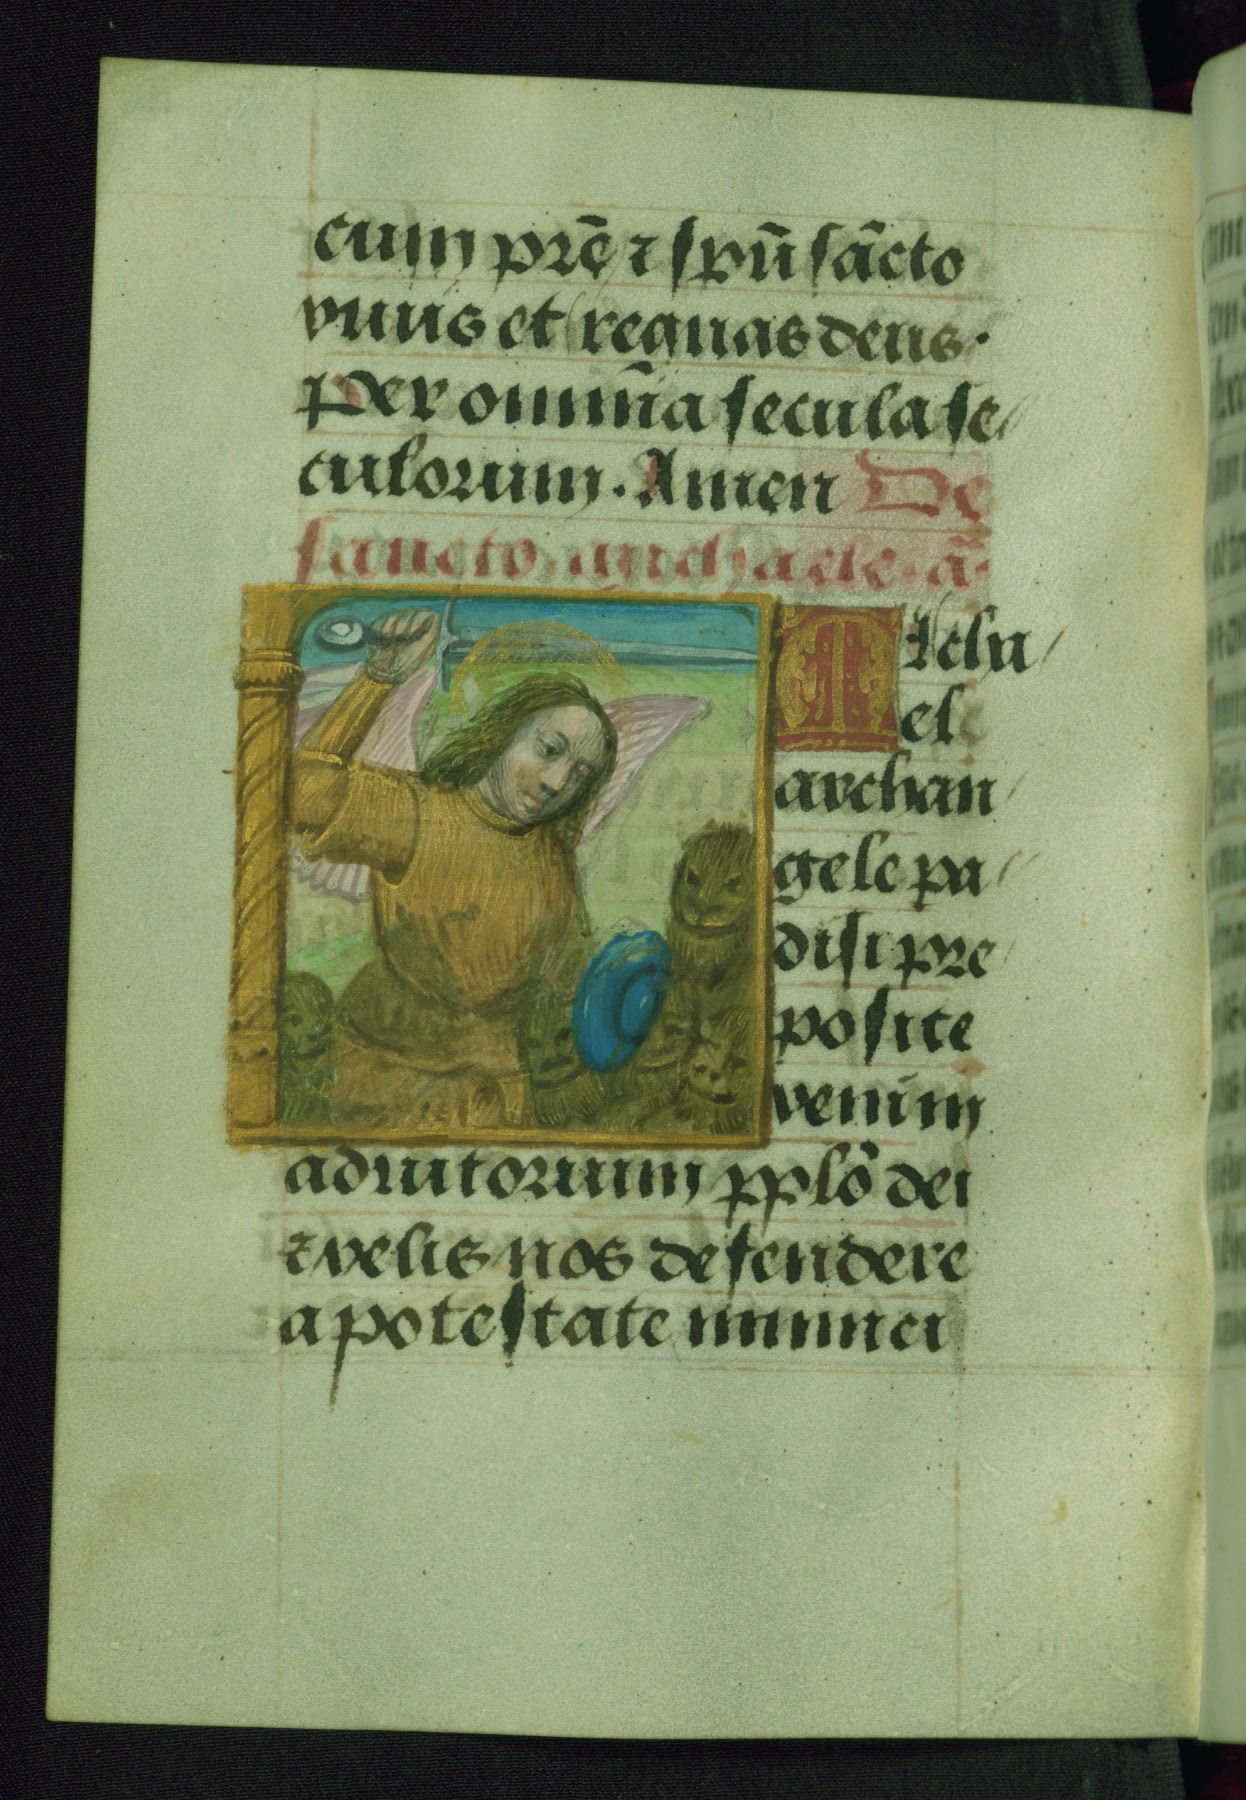 cum pr̄e ⁊ sp̄u sācto
viuis et regnas deus·
per omn̄ia secula se
culorum. Amen De
sancto michaele. ā
Michi
el
archan
gele pa
disi pre
posite
venim
adiutorium pplō dei
⁊ velis nos defendere
a potestate inimici